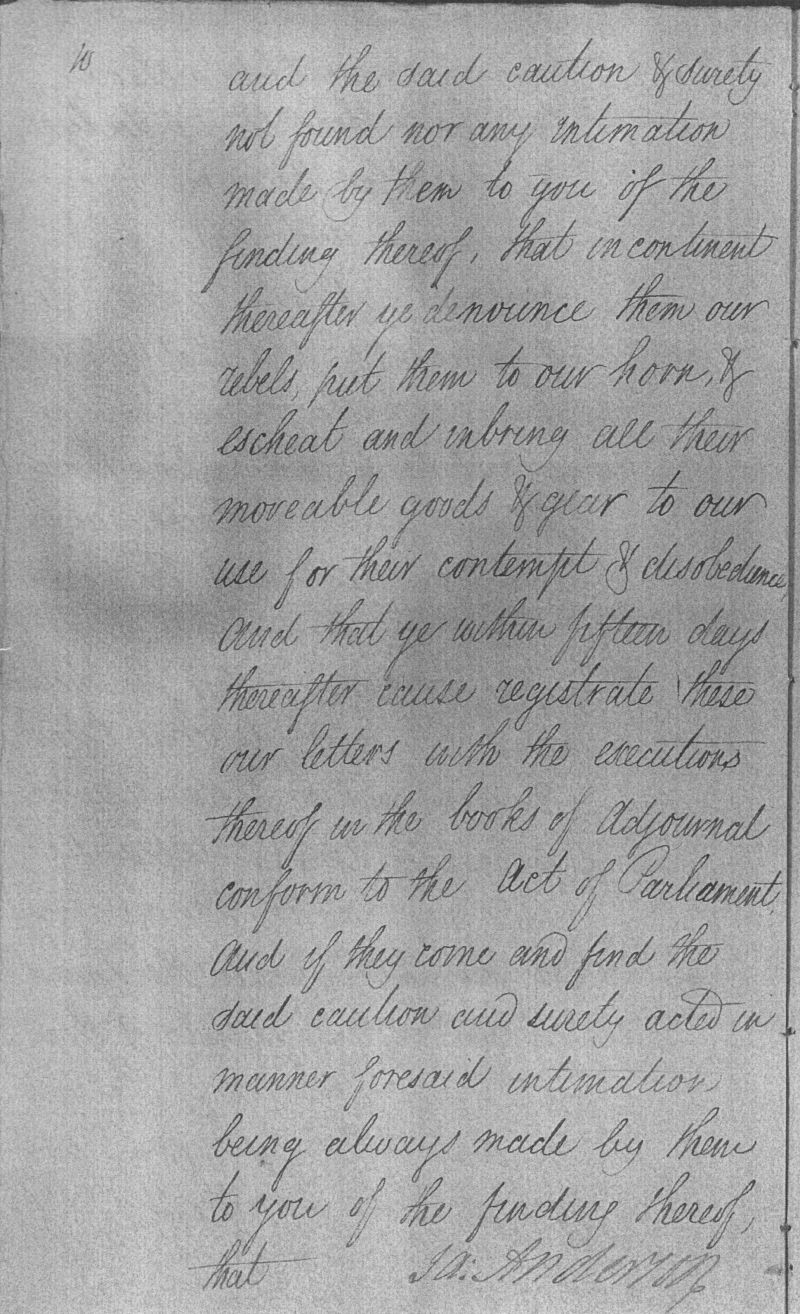 10
and the said caution & surety
not found nor any intimation
made by them to you of the
finding thereof, that incontinent
thereafter ye denounce them our
rebels, put them to our horn, &
escheat and inbring all their
moveable goods & gear to our
use for their contempt & disobedience,
And that ye within fifteen days
thereafter cause registrate these
our letters with the executions
thereof in the books of Adjournal
conform to the Act of Parliament.
And if they come and find the
said caution and surety acted in
manner foresaid intimation
being always made by them
to you of the finding thereof,
that Ja: Anderson